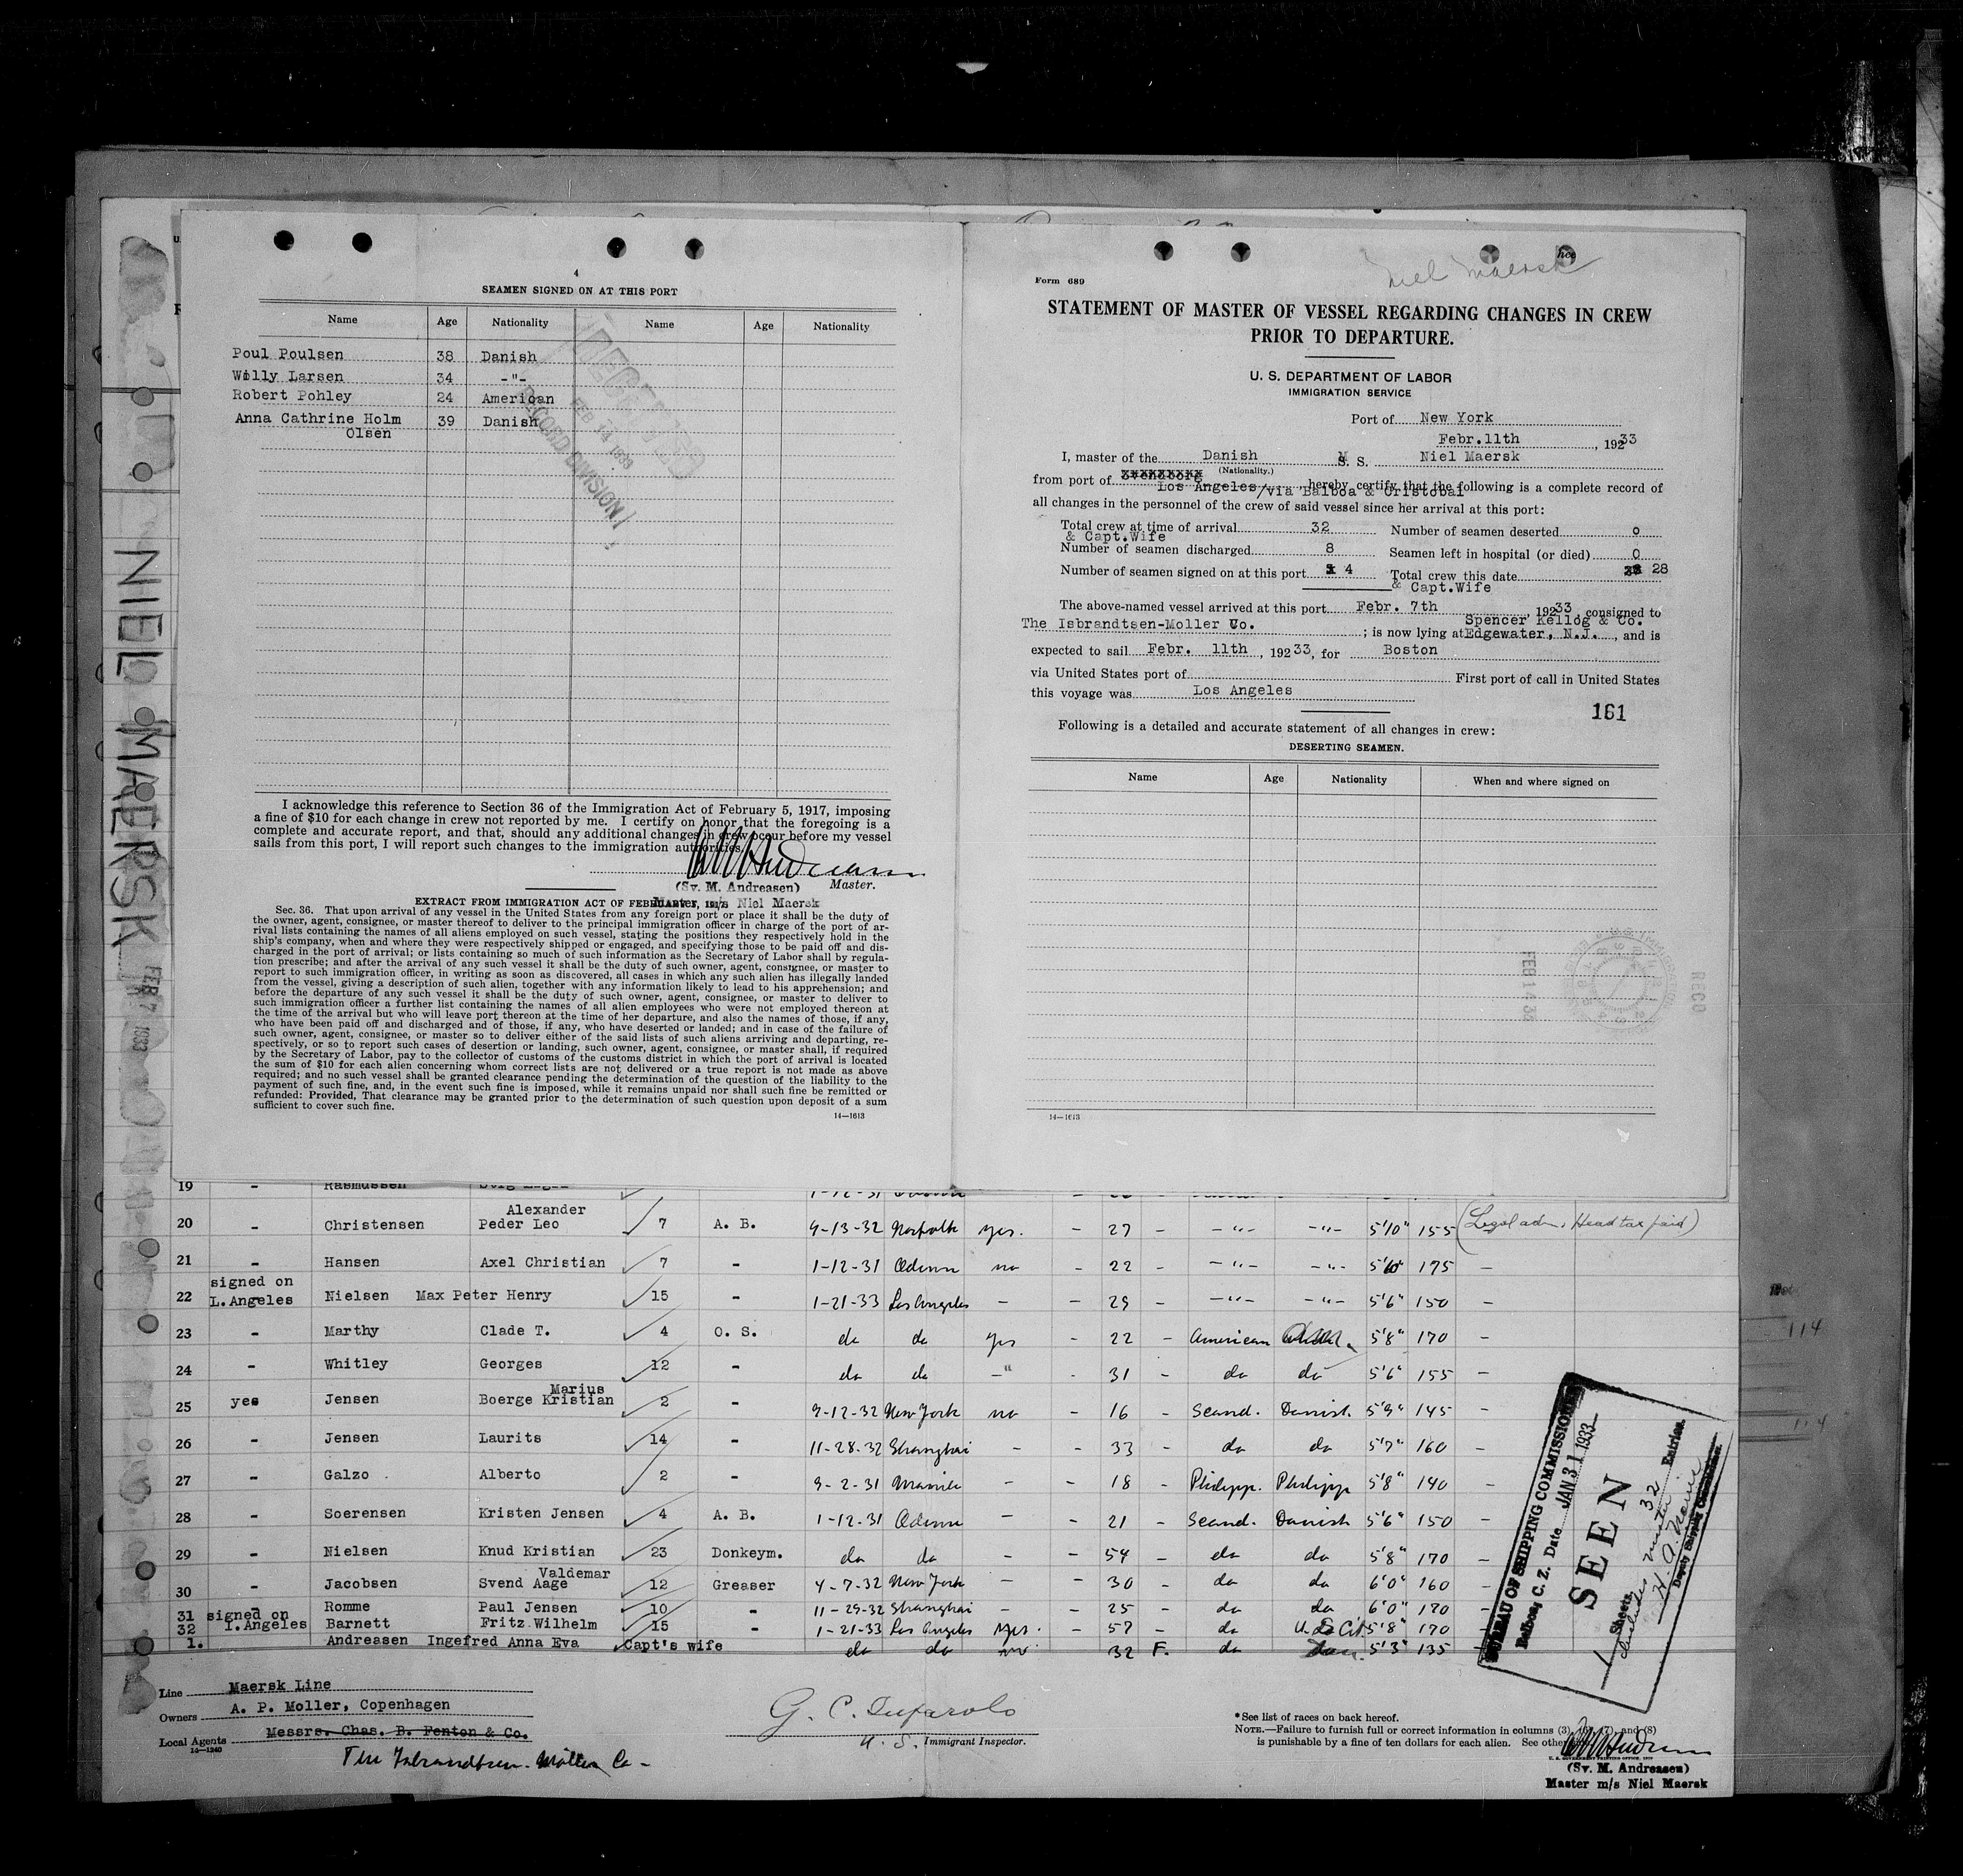 NIEL MAERSK
FEB 7 1933
4
SEAMEN SIGNED ON AT THIS PORT
Name Age Nationality Name Age Nationality
Poul Poulsen 38 Danish
Willy Larsen 34 -"-
Robert Pohley 24 American
Anna Cathrine Holm 39 Danish
Olsen
RECEIVED
FEB 14 1933
RECORD DIVISION
I acknowledge this reference to Section 36 of the Immigration Act of February 5, 1917, imposing
a fine of $10 for each change in crew not reported by me. I certify on honor that the foregoing is a
complete and accurate report, and that, should any additional changes in crew occur before my vessel
sails from this port, I will report such changes to the immigration authorities.
(Sv. M. Andreasen) Master.
Master, m/s Niel Maersk
EXTRACT FROM IMMIGRATION ACT OF FEBRUARY 5, 1917
Sec. 36. That upon arrival of any vessel in the United States from any foreign port or place it shall be the duty of
the owner, agent, consignee, or master thereof to deliver to the principal immigration officer in charge of the port of ar-
rival lists containing the names of all aliens employed on such vessel, stating the positions they respectively hold in the
ship's company, when and where they were respectively shipped or engaged, and specifying those to be paid off and dis-
charged in the port of arrival; or lists containing so much of such information as the Secretary of Labor shall by regula-
tion prescribe; and after the arrival of any such vessel it shall be the duty of such owner, agent, consignee, or master to
report to such immigration officer, in writing as soon as discovered, all cases in which any such alien has illegally landed
from the vessel, giving a description of such alien, together with any information likely to lead to his apprehension; and
before the departure of any such vessel it shall be the duty of such owner, agent, consignee, or master to deliver to
such immigration officer a further list containing the names of all alien employees who were not employed thereon at
the time of the arrival but who will leave port thereon at the time of her departure, and also the names of those, if any,
who have been paid off and discharged and of those, if any, who have deserted or landed; and in case of the failure of
such owner, agent, consignee, or master so to deliver either of the said lists of such aliens arriving and departing, re-
spectively, or so to report such cases of desertion or landing, such owner, agent, consignee, or master shall, if required
by the Secretary of Labor, pay to the collector of customs of the customs district in which the port of arrival is located
the sum of $10 for each alien concerning whom correct lists are not delivered or a true report is not made as above
required; and no such vessel shall be granted clearance pending the determination of the question of the liability to the
payment of such fine, and, in the event such fine is imposed, while it remains unpaid nor shall such fine be remitted or
refunded: Provided, That clearance may be granted prior to the determination of such question upon deposit of a sum
sufficient to cover such fine.
14—1613
hce
Niel Maersk
Form 689
STATEMENT OF MASTER OF VESSEL REGARDING CHANGES IN CREW
PRIOR TO DEPARTURE.
U. S. DEPARTMENT OF LABOR
IMMIGRATION SERVICE
Port of New York
Febr.11th, 19233
I, master of the Danish M S. S. Niel Maersk
(Nationality.)
from port of Svendborg Los Angeles/via Balboa & Cristobal, hereby certify that the following is a complete record of
all changes in the personnel of the crew of said vessel since her arrival at this port:
Total crew at time of arrival 32 Number of seamen deserted o
& Capt.Wife
Number of seamen discharged 8 Seamen left in hospital (or died) 0
Number of seamen signed on at this port 4 Total crew this date 28
& Capt.Wife
The above-named vessel arrived at this port Febr. 7th, 19233, consigned to
The Isbrandtsen-Moller Co.; is now lying at Spencer Kellog & Co. Edgewater, N.J., and is
expected to sail Febr. 11th, 19233, for Boston
via United States port of First port of call in United States
this voyage was Los Angeles
161
Following is a detailed and accurate statement of all changes in crew:
DESERTING SEAMEN.
Name Age Nationality When and where signed on
FEB 14 33
RECD
14—1613
19 - Rasmussen
Alexander
20 - Christensen Peder Leo 7 A. B. 9-13-32 Norfolk yes. - 27 - -"- -"- 5'10" 155 (Legal adm. Head tax paid)
21 - Hansen Axel Christian 7 - 1-12-31 Odense no - 22 - -"- -"- 175 -
signed on
22 L.Angeles Nielsen Max Peter Henry 15 1-21-33 Los Angeles - - 29 - -"- -"- 5'6" 150 -
23 - Marthy Clade T. 4 O. S. do do yes - 22 - American 5'8" 170 -
24 - Whitley Georges 12 - do do -" - 31 - do do 5'6" 155 -
Marius
25 yes Jensen Boerge Kristian 2 - 9-12-32 New York no - 16 - Scand. Danish. 5'9" 145 -
26 - Jensen Laurits 14 - 11-28-32 Shanghai - - 33 - do do 5'7" 160 -
27 - Galzo Alberto 2 - 9-2-31 Manila - - 18 - Philipp. Philipp 5'8" 140 -
28 - Soerensen Kristen Jensen 4 A. B. 1-12-31 Odense - - 21 - Scand. Danish 5'6" 150 -
29 - Nielsen Knud Kristian 23 Donkeym. do do - - 54 - do do 5'8" 170 -
Valdemar
30 - Jacobsen Svend Aage 12 Greaser 4-7-32 New York - - 30 - do do 6'0" 160 -
31 - Romme Paul Jensen 10 - 11-29-32 Shanghai - - 25 - do do 6'0" 170
signed on
32 L.Angeles Barnett Fritz Wilhelm 15 - 1-21-33 Los Angeles yes. - 57 - do U.S. Cit. 5'8" 170
1. Andreasen Ingefred Anna Eva Capt's wife do do no 32 F. do Dan. 5'3" 135
114
114
BUREAU OF SHIPPING COMMISSIONER
Balboa, C. Z. Date JAN 31 1933
SEEN
1 Sheets 32 Entries.
includes master
Deputy Shipping Commissioner.
Line Maersk Line
Owners A. P. Moller, Copenhagen
Local Agents Messrs. Chas. B. Fenton & Co.
14—1240
The Isbrandtsen-Möller Co -
U. S. Immigrant Inspector.
*See list of races on back hereof.
NOTE.—Failure to furnish full or correct information in columns (3), (6), (7), and (8)
is punishable by a fine of ten dollars for each alien. See other
(Sv. M. Andreasen)
Master m/s Niel Maersk